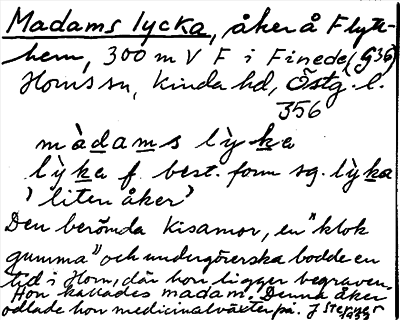 Madams lycka, åker å Flytt-
hem, 300 m V F i Finede (G36)
Horns sn, Kinda hd, Östg. l.
356
màdams lỳka
lỳka f. best. form sg. lỳka
'liten åker'
Den berömda Kisamor, en "klok
gumma" och undergörerska bodde en
tid i Horn, där hon ligger begraven.
Hon kallades madam. Denna åker
odlade hon medicinalväxter på.